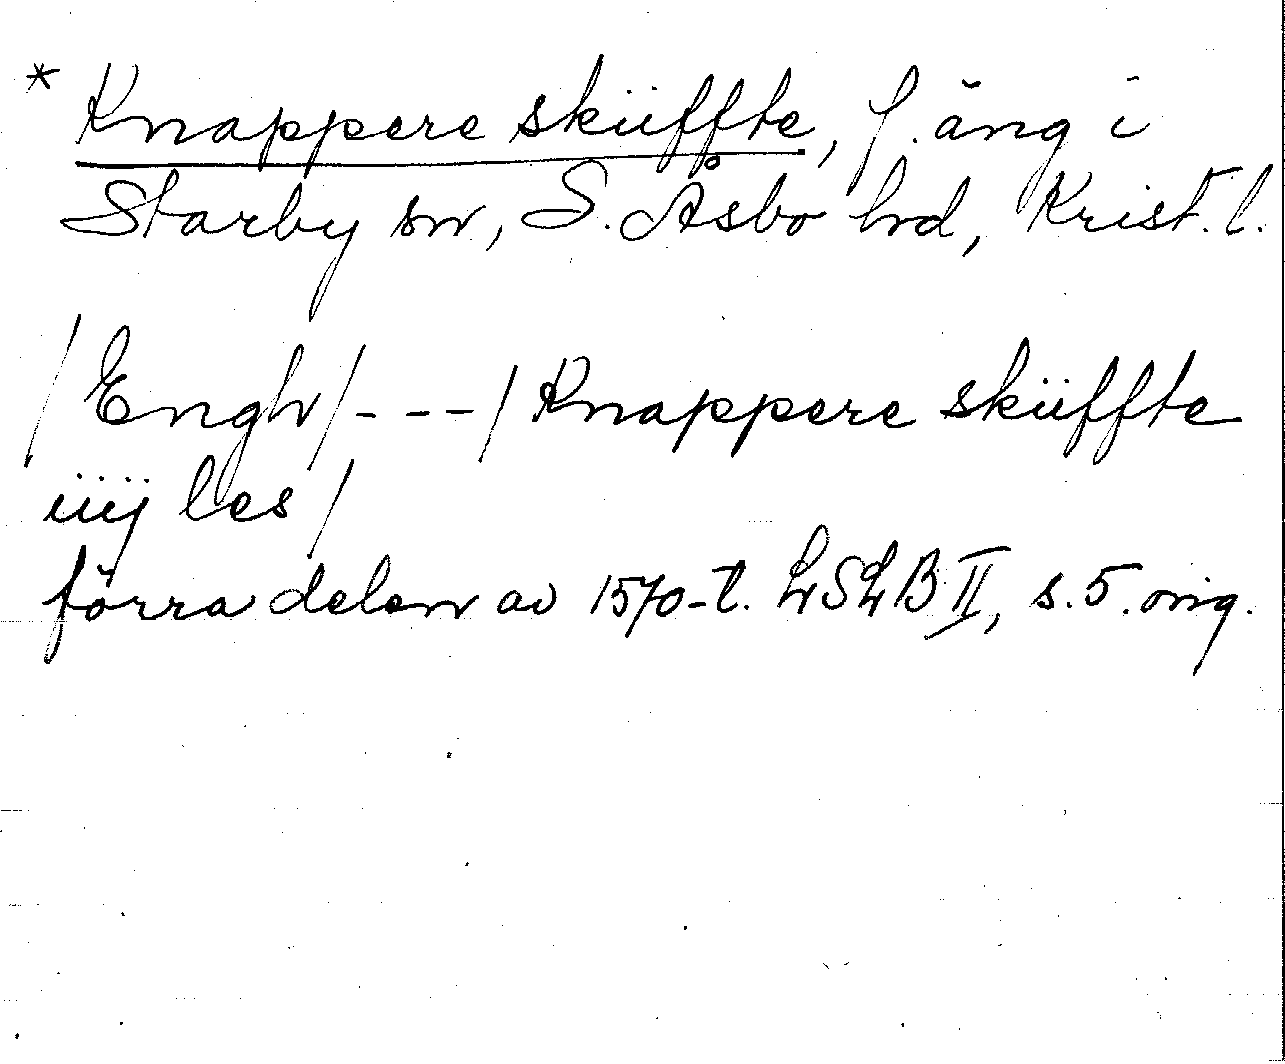 * Knappere sküffte, f. äng i
Starby sn, S. Åsbo hd, Krist. l.
/Engh/---/Knappere sküffte
iiij les/
förra delen av 1570-t. LSLB II, s. 5. orig.